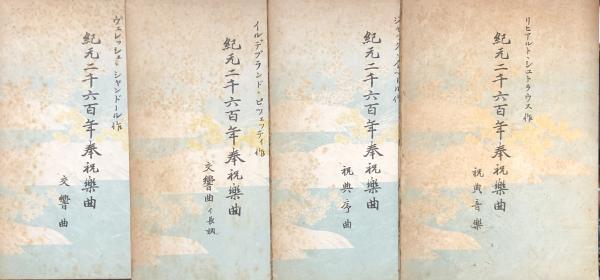 リヒアルト・シュトラウス作
紀元二千六百年奉祝樂曲
祝典音樂
ジャック・イベール作
紀元二千六百年奉祝樂曲
祝典序曲
イルデブランド・ピツェッティ作
紀元二千六百年奉祝樂曲
交響曲イ長調
ヴェレッシェ・シャンドール作
紀元二千六百年奉祝樂曲
交響曲